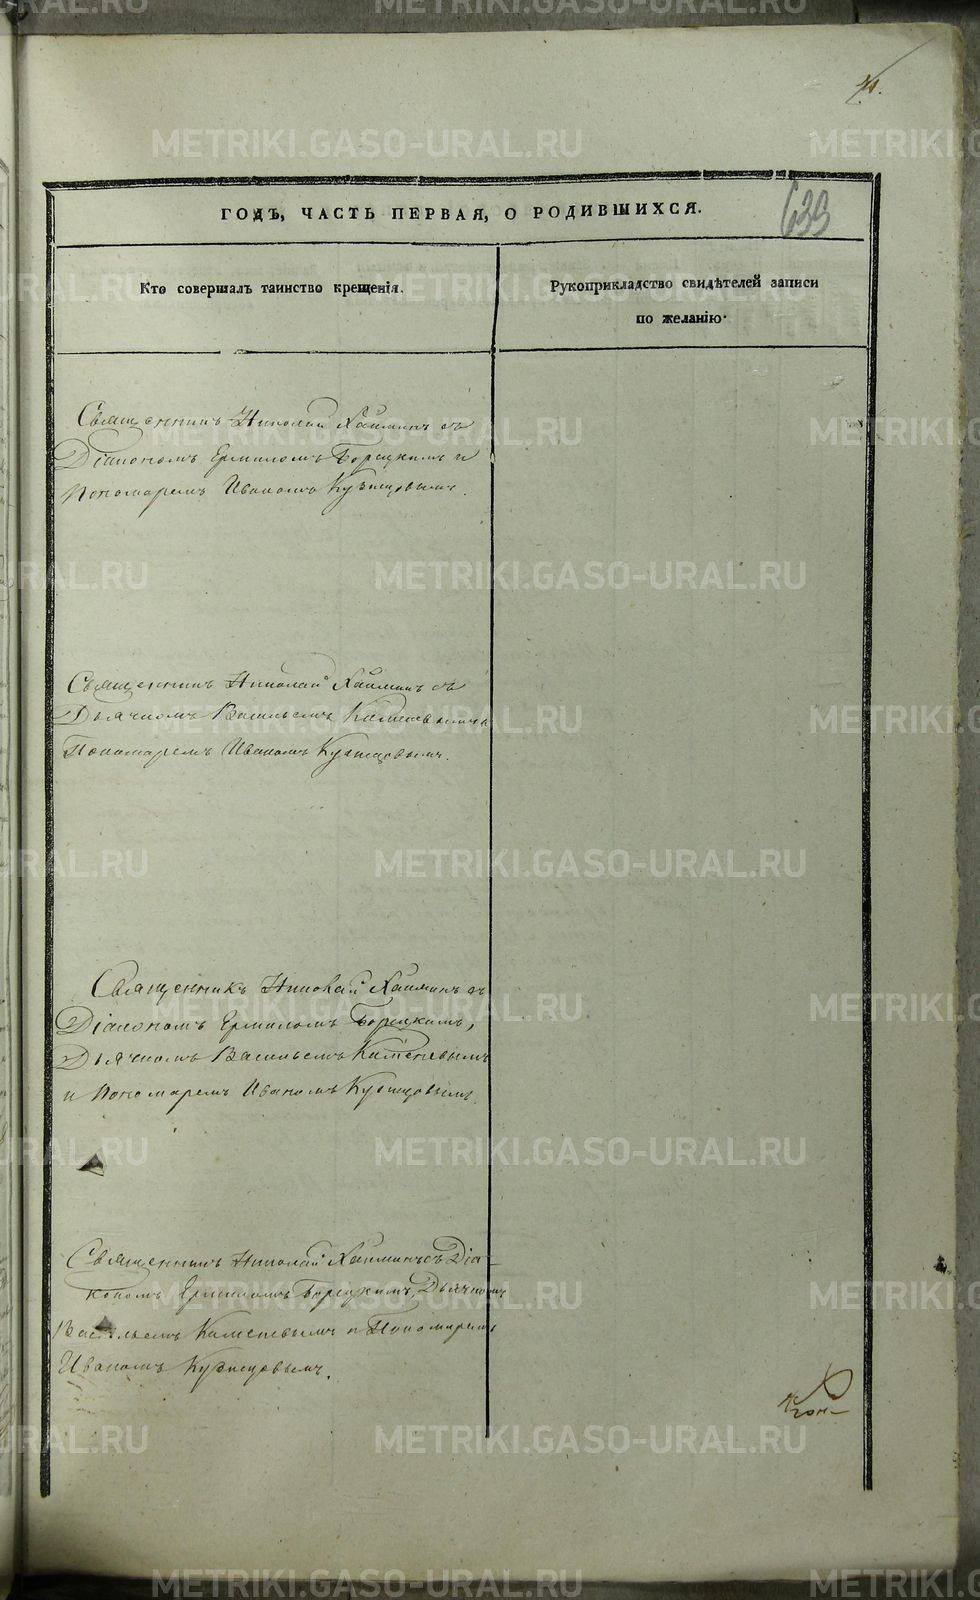 633
ГОДЪ, ЧАСТЬ ПЕРВАЯ, О РОДИВШИХСЯ.
Кто совершалъ таинство крещенія.
Рукоприкладство свидѣтелей записи
по желанію.
Священникъ Николай Хайминъ съ
Діакономъ Ермиломъ Борецкимъ и
Пономаремъ Иваномъ Кузнецовымъ.
Священникъ Николай Хайминъ съ
Дьячкомъ Васильемъ Каменевымъ и
Пономаремъ Иваномъ Кузнецовымъ.
Священникъ Николай Хайминъ съ
Діакономъ Ермиломъ Борецкимъ,
Дьячкомъ Васильемъ Каменевымъ
и Пономаремъ Иваномъ Кузнецовымъ.
Священникъ Николай Хайминъ съ Діа-
кономъ Ермиломъ Борецкимъ, Дьячкомъ
Васильемъ Каменевымъ и Пономаремъ
Иваномъ Кузнецовымъ.
METRIKI.GASO-URAL.RU